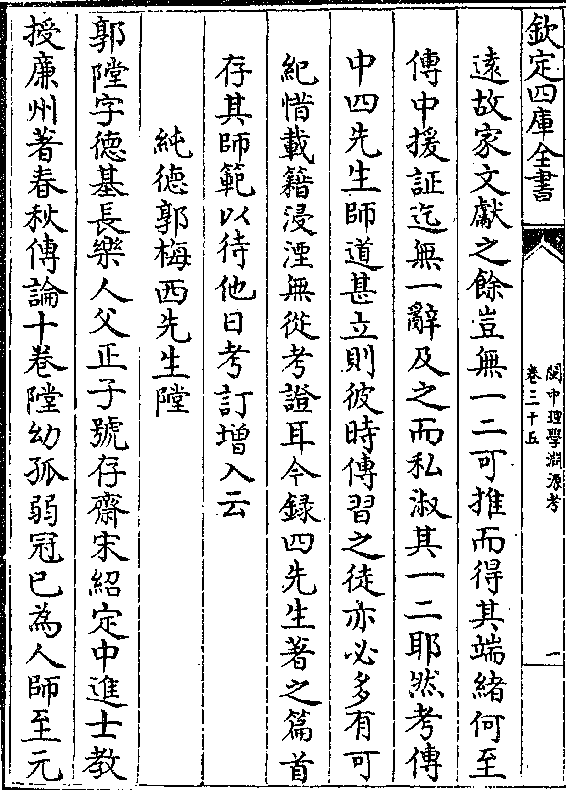 欽定四庫全書
閩中理學淵源考
卷三十五
一
遠故家文獻之餘豈無一二可推而得其端緒何至
傳中援証迄無一辭及之而私淑其一二耶然考傳
中四先生師道甚立則彼時傳習之徒亦必多有可
紀惜載籍浸湮無從考證耳今録四先生著之篇首
存其師範以待他日考訂增入云
純德郭梅西先生隍
郭隍字德基長樂人父正子號存齋宋紹定中進士教
授廉州著春秋傳論十卷隍幼孤弱冠已為人師至元